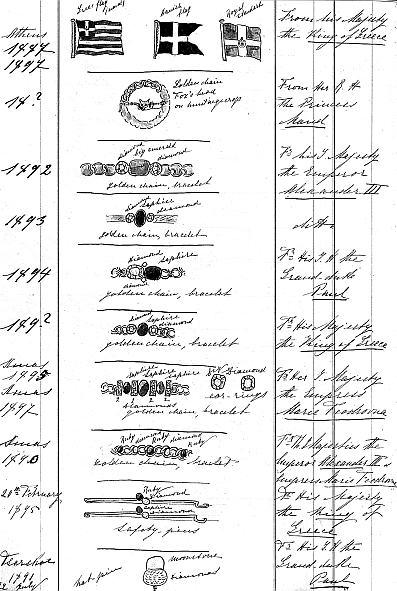 Greek flag
Danish flag
Royal Standard
Athens
1887
1897
From his Majesty
the King of Greece
18?
Golden chain
Fox's head
on huntingcrop
From Her R H
The Princess
Maud
1892
diamond big emerald
diamond
golden chain, bracelet
Fr his I. Majesty
the Emperor
Alexander III
1893
Saphire
diamond
golden chain, bracelet
ditto
1894
diamond
saphire
golden chain, bracelet
Fr His I. H the
Grand duke
Paul
189?
saphire
diamond
golden chain, bracelet
Fr His Majesty
the King of Greece
Xmas
1895
Xmas
1897
saphire saphire saphire
diamonds
Diamond
ear-rings
golden chain, bracelet
Fr Her I. Majesty
the Empress
Marie Feodrovna
Xmas
Ruby diamond Ruby diamond
Ruby
golden chain, bracelet
Fr H Majesties the
Emperor Alexander III
Empress Marie Feodrovna
20th February
1895
Ruby
diamond
saphire
diamond
safety-pins
Fr His Majesty
the King of
Greece
1891
hat-pin
moonstone
diamonds
Fr His I. H the
Grand duke
Paul